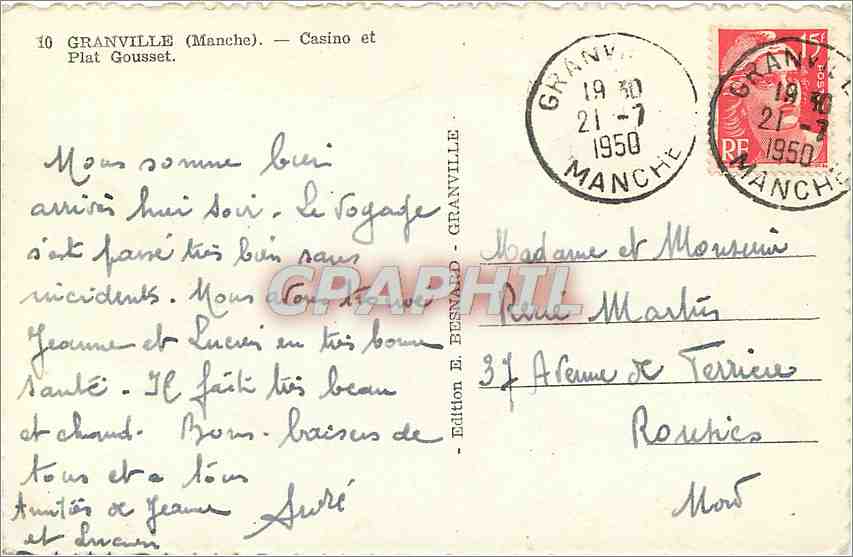 10 GRANVILLE (Manche). — Casino et
Plat Gousset.
Nous somme bien
arrivés hier soir. Le voyage
s'est passé très bien sans
incidents. Nous avons trouvé
Jeanne et Lucien en très bonne
santé. Il fait très beau
et chaud. Bons baisers de
tous et a tous
Amitiés de Jeanne
et Lucien
André
- Edition E. BESNARD - GRANVILLE -
GRANVILLE
19 30
21 -7
1950
MANCHE
GRANVILLE
19 30
21 -7
1950
MANCHE
15F
POSTES
RF
Madame et Monsieur
René Martins
37 Avenue de
Nord
CPAPHIL